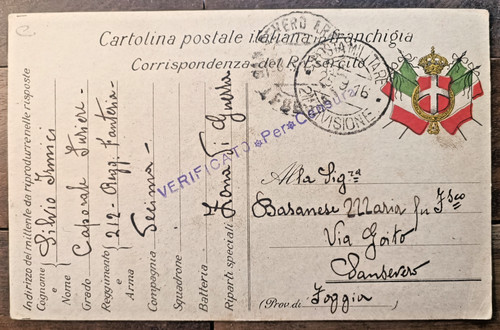 Cartolina postale italiana in franchigia
Corrispondenza del R. Esercito
POSTA MILITARE
DIVISIONE
VERIFICATO * Per * Censura
Indirizzo del mittente da riprodurre nelle risposte
Cognome e Nome Silvio
Grado Caporale Furiere
Reggimento e Arma 212 - Regg. Fanteria
Compagnia Decima
Squadrone
Batteria
Riparti speciali Zona di Guerra
Alla Sig.ra
Basanese Maria fu F.sco
Via Goito
Sansevero
(Prov. di Foggia